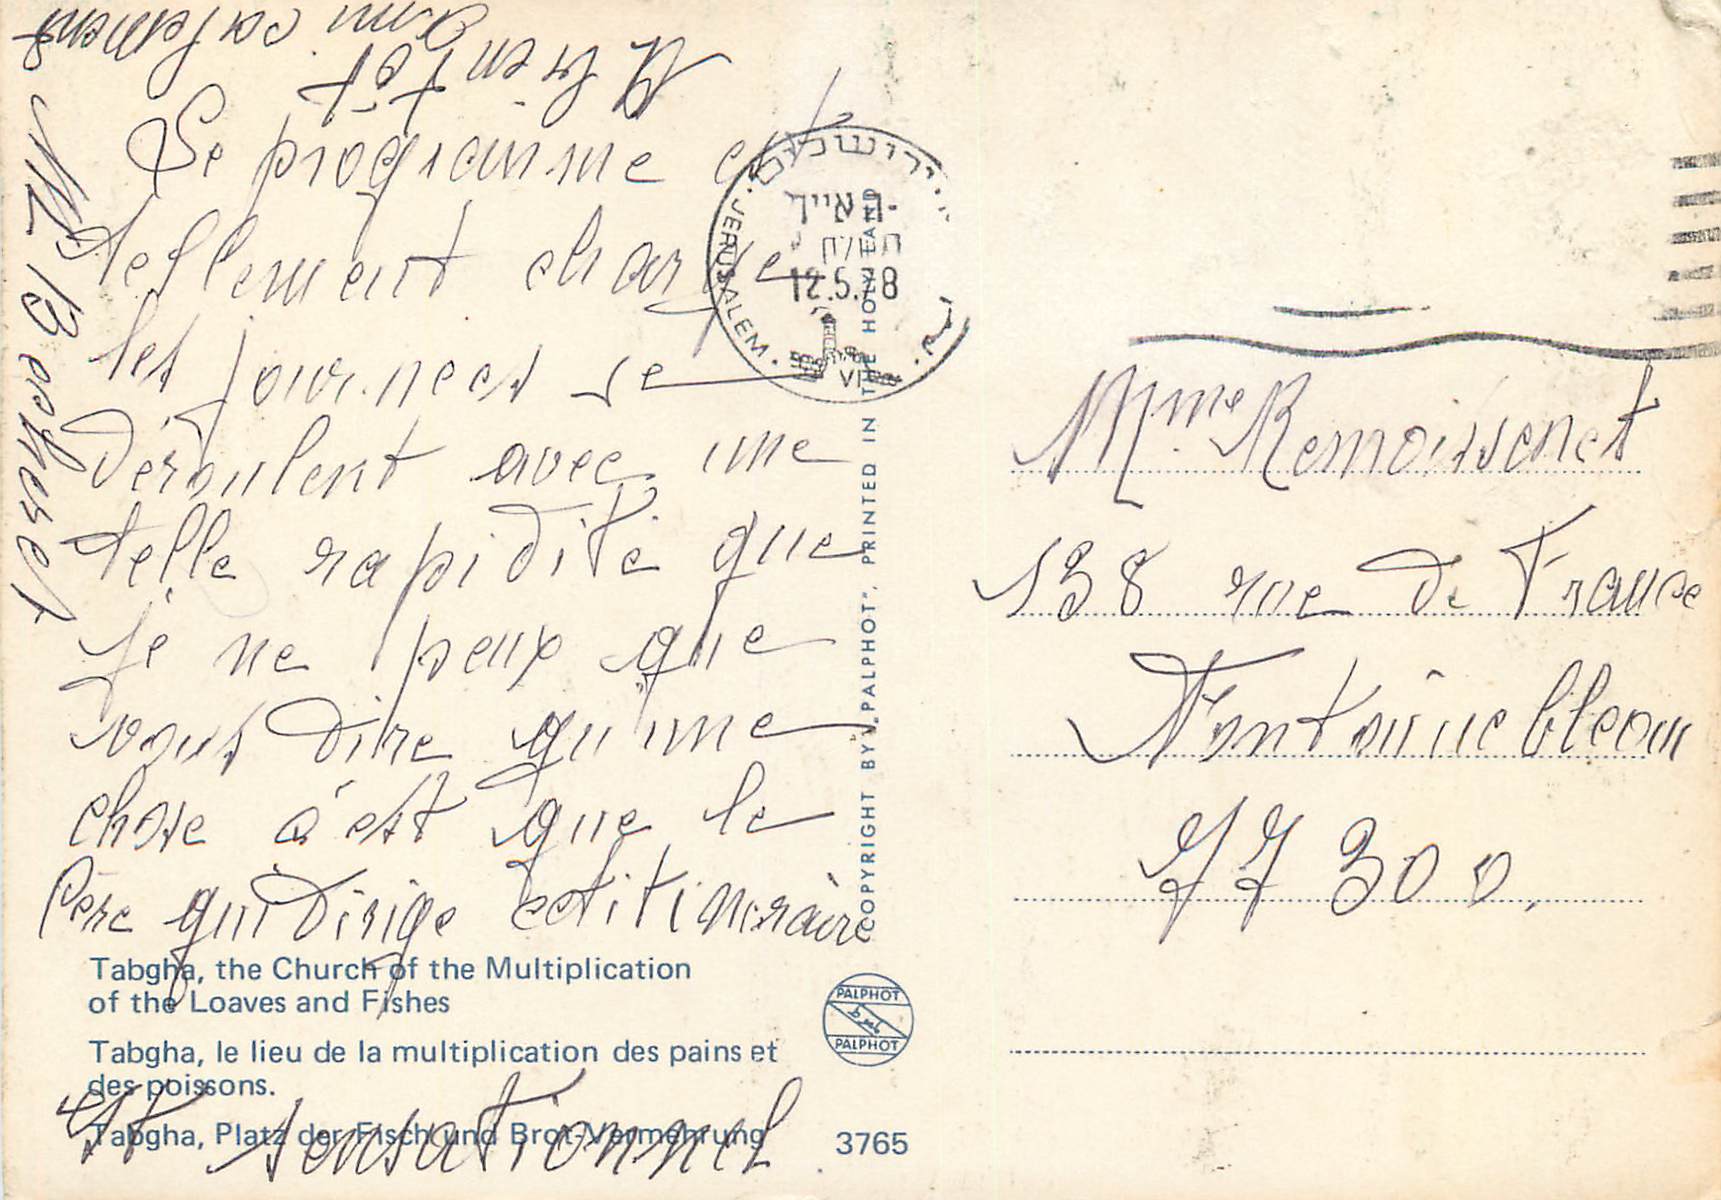 Le programme est
tellement chargé
les journées se
déroulent avec une
telle rapidité que
je ne peux que
vous dire qu'une
chose c'est que le
Père qui dirige cet itinéraire
est sensationnel
A bientôt
amicalement
Tabgha, the Church of the Multiplication
of the Loaves and Fishes
Tabgha, le lieu de la multiplication des pains et
des poissons.
Tabgha, Platz der Fisch und Brot-Vermehrung
3765
PALPHOT
PALPHOT
COPYRIGHT BY „PALPHOT", PRINTED IN THE HOLY LAND
ירושלים
JERUSALEM
12.5.78
Mme Remoissenet
138 rue de France
Fontainebleau
77300.